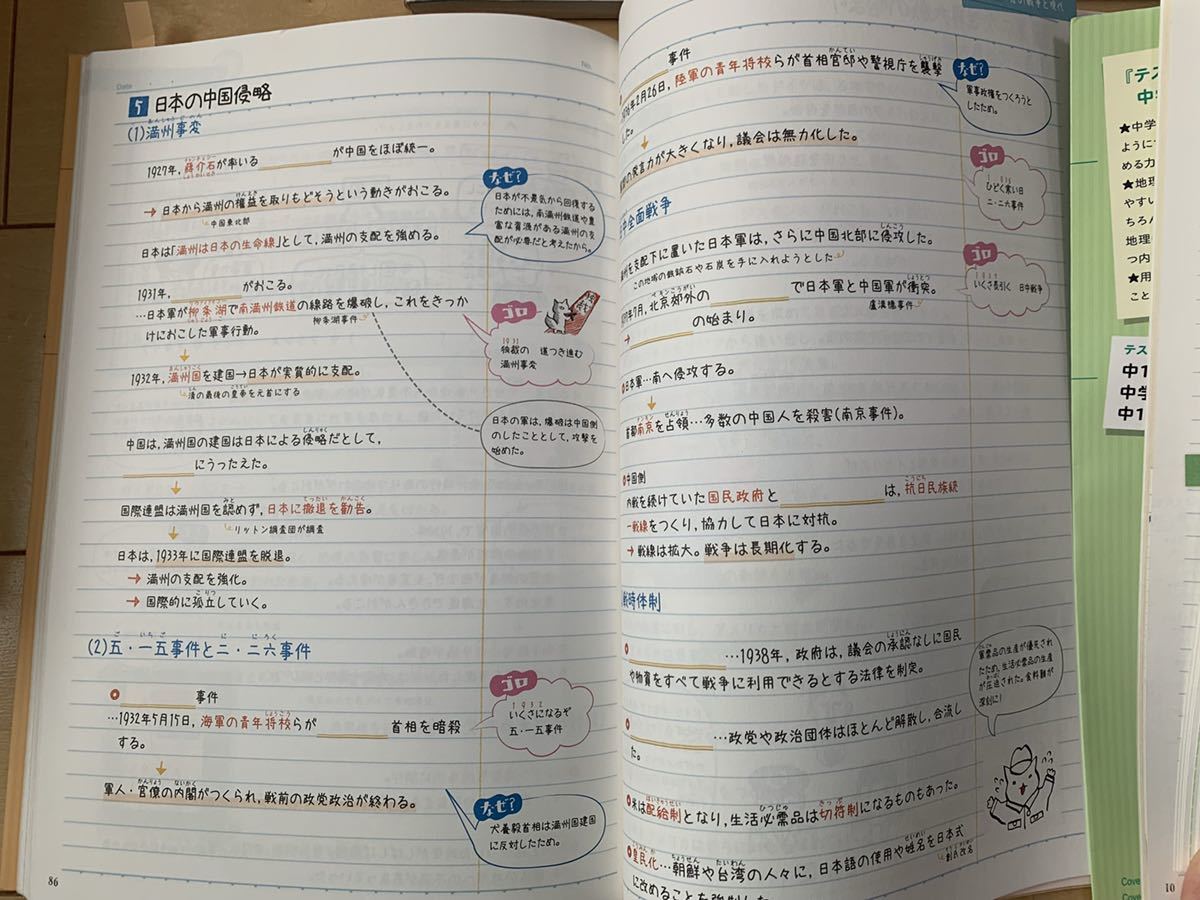 Date
No.
5 日本の中国侵略
(1)満州事変
1927年，蔣介石が率いる が中国をほぼ統一。
→ 日本から満州の権益を取りもどそうという動きがおこる。
中国東北部
日本は「満州は日本の生命線」として，満州の支配を強める。
なぜ?
日本が不景気から回復する
ためには，南満州鉄道や豊
富な資源がある満州の支
配が必要だと考えたから。
1931年， がおこる。
…日本軍が柳条湖で南満州鉄道の線路を爆破し，これをきっか
けにおこした軍事行動。
柳条湖事件
ゴロ
1931
独裁の 道つき進む
満州事変
1932年，満州国を建国→日本が実質的に支配。
清の最後の皇帝を元首にする
日本の軍は，爆破は中国側
のしたこととして，攻撃を
始めた。
中国は，満州国の建国は日本による侵略だとして，
にうったえた。
国際連盟は満州国を認めず，日本に撤退を勧告。
リットン調査団が調査
日本は，1933年に国際連盟を脱退。
→ 満州の支配を強化。
→ 国際的に孤立していく。
(2)五・一五事件と二・二六事件
事件
…1932年5月15日，海軍の青年将校らが 首相を暗殺
する。
ゴロ
1932
いくさになるぞ
五・一五事件
軍人・官僚の内閣がつくられ，戦前の政党政治が終わる。
なぜ?
犬養毅首相は満州国建国
に反対したため。
86
事件
年2月26日，陸軍の青年将校らが首相官邸や警視庁を襲撃
した。
なぜ?
軍事政権をつくろうと
したため。
の発言力が大きくなり，議会は無力化した。
ゴロ
1936
ひどく寒い日
二・二六事件
中全面戦争
を支配下に置いた日本軍は，さらに中国北部に侵攻した。
この地域の鉄鉱石や石炭を手に入れようとした
ゴロ
1937
いくさ長引く 日中戦争
年7月，北京郊外の で日本軍と中国軍が衝突。
盧溝橋事件
→ の始まり。
日本軍…南へ侵攻する。
首都南京を占領…多数の中国人を殺害(南京事件)。
中国側
内戦を続けていた国民政府と は，抗日民族統
一戦線をつくり，協力して日本に対抗。
→ 戦線は拡大。戦争は長期化する。
戦時体制
…1938年，政府は，議会の承認なしに国民
や物資をすべて戦争に利用できるとする法律を制定。
軍需品の生産が優先され
たため，生活必需品の生産
が圧迫された。食料難が
深刻に!
…政党や政治団体はほとんど解散し，合流し
た。
米は配給制となり，生活必需品は切符制になるものもあった。
皇民化…朝鮮や台湾の人々に，日本語の使用や姓名を日本式
創氏改名
に改めることを強制した
『テス
中学
★中学
ように
める力
★地理
やすい
ちろん
地理
つ内
★用
こと
テス
中1
中学
中1
Cove
Cove
10